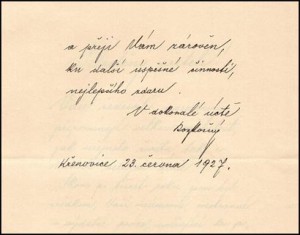 a přeji Vám zároveň,
ku další úspěšné činnosti,
nejlepšího zdaru.
V dokonalé úctě
Křenovice 23. června 1927.